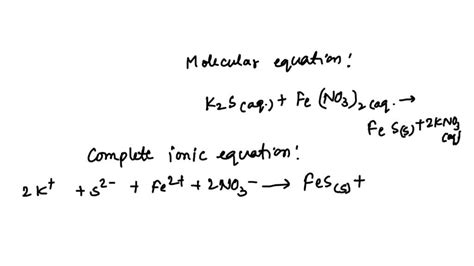 Molecular equation:
K₂S(aq.) + Fe(NO₃)₂(aq. →
FeS(s) + 2KNO₃
(aq)
Complete ionic equation:
2K⁺ + S²⁻ + Fe²⁺ + 2NO₃⁻ → FeS(s) +